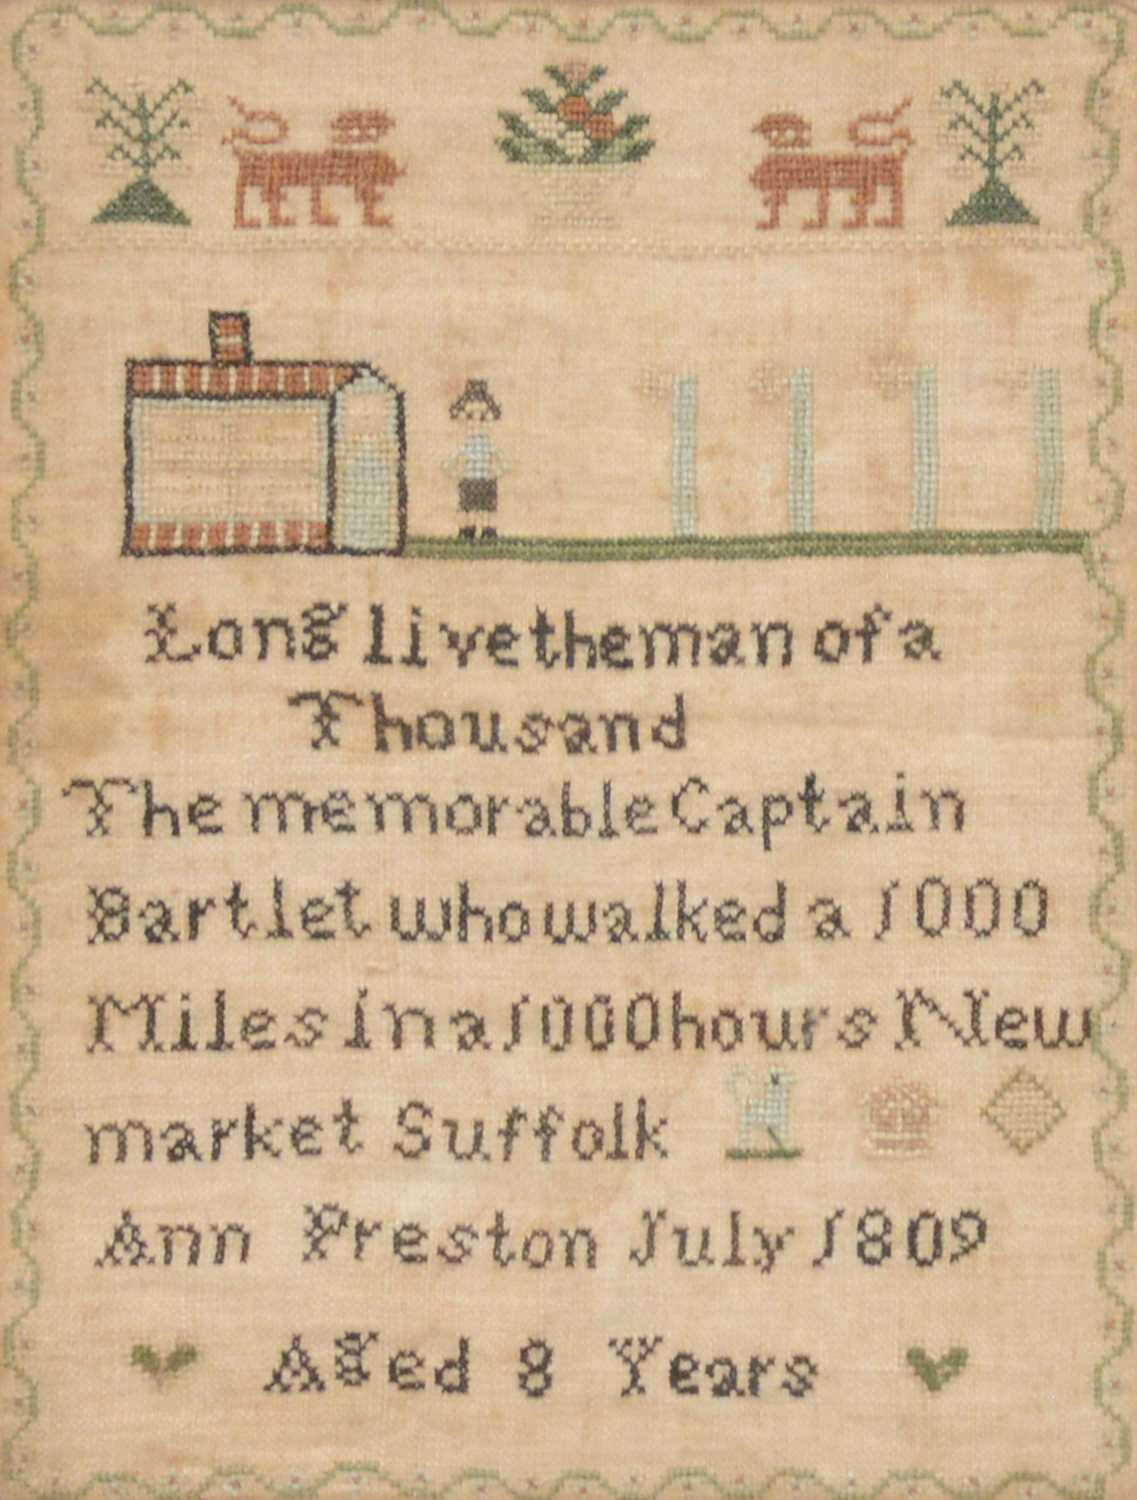 Long live the man of a
Thousand
The memorable Captain
Bartlet who walked a 1000
Miles In a 1000 hours New
market Suffolk
Ann Preston July 1809
Aged 8 Years